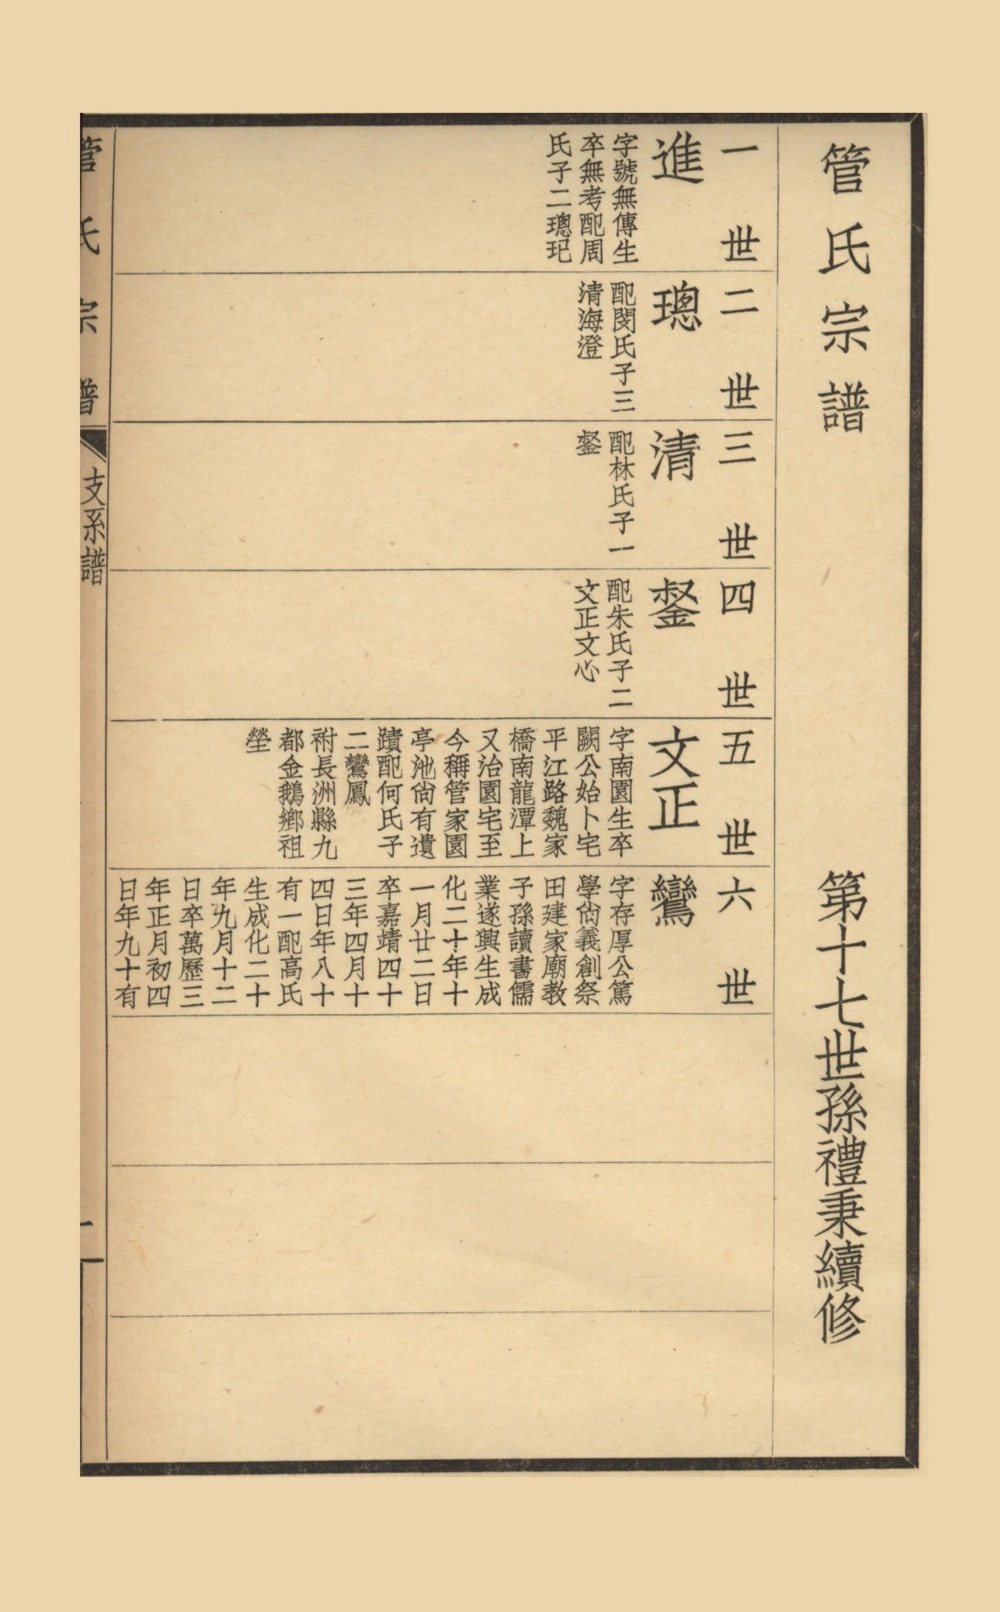 管氏宗譜
第十七世孫禮秉續修
一世
進
字號無傳生
卒無考配周
氏子二璁玘
二世
璁
配閔氏子三
清海澄
三世
清
配林氏子一
鋆
四世
鋆
配朱氏子二
文正文心
五世
文正
字南園生卒
闕公始卜宅
平江路魏家
橋南龍潭上
又治園宅至
今稱管家園
亭池尙有遺
蹟配何氏子
二鸞鳳
祔長洲縣九
都金鵝鄉祖
塋
六世
鸞
字存厚公篤
學尙義創祭
田建家廟教
子孫讀書儒
業遂興生成
化二十年十
一月廿二日
卒嘉靖四十
三年四月十
四日年八十
有一配高氏
生成化二十
年九月十二
日卒萬歷三
年正月初四
日年九十有
管氏宗譜
支系譜